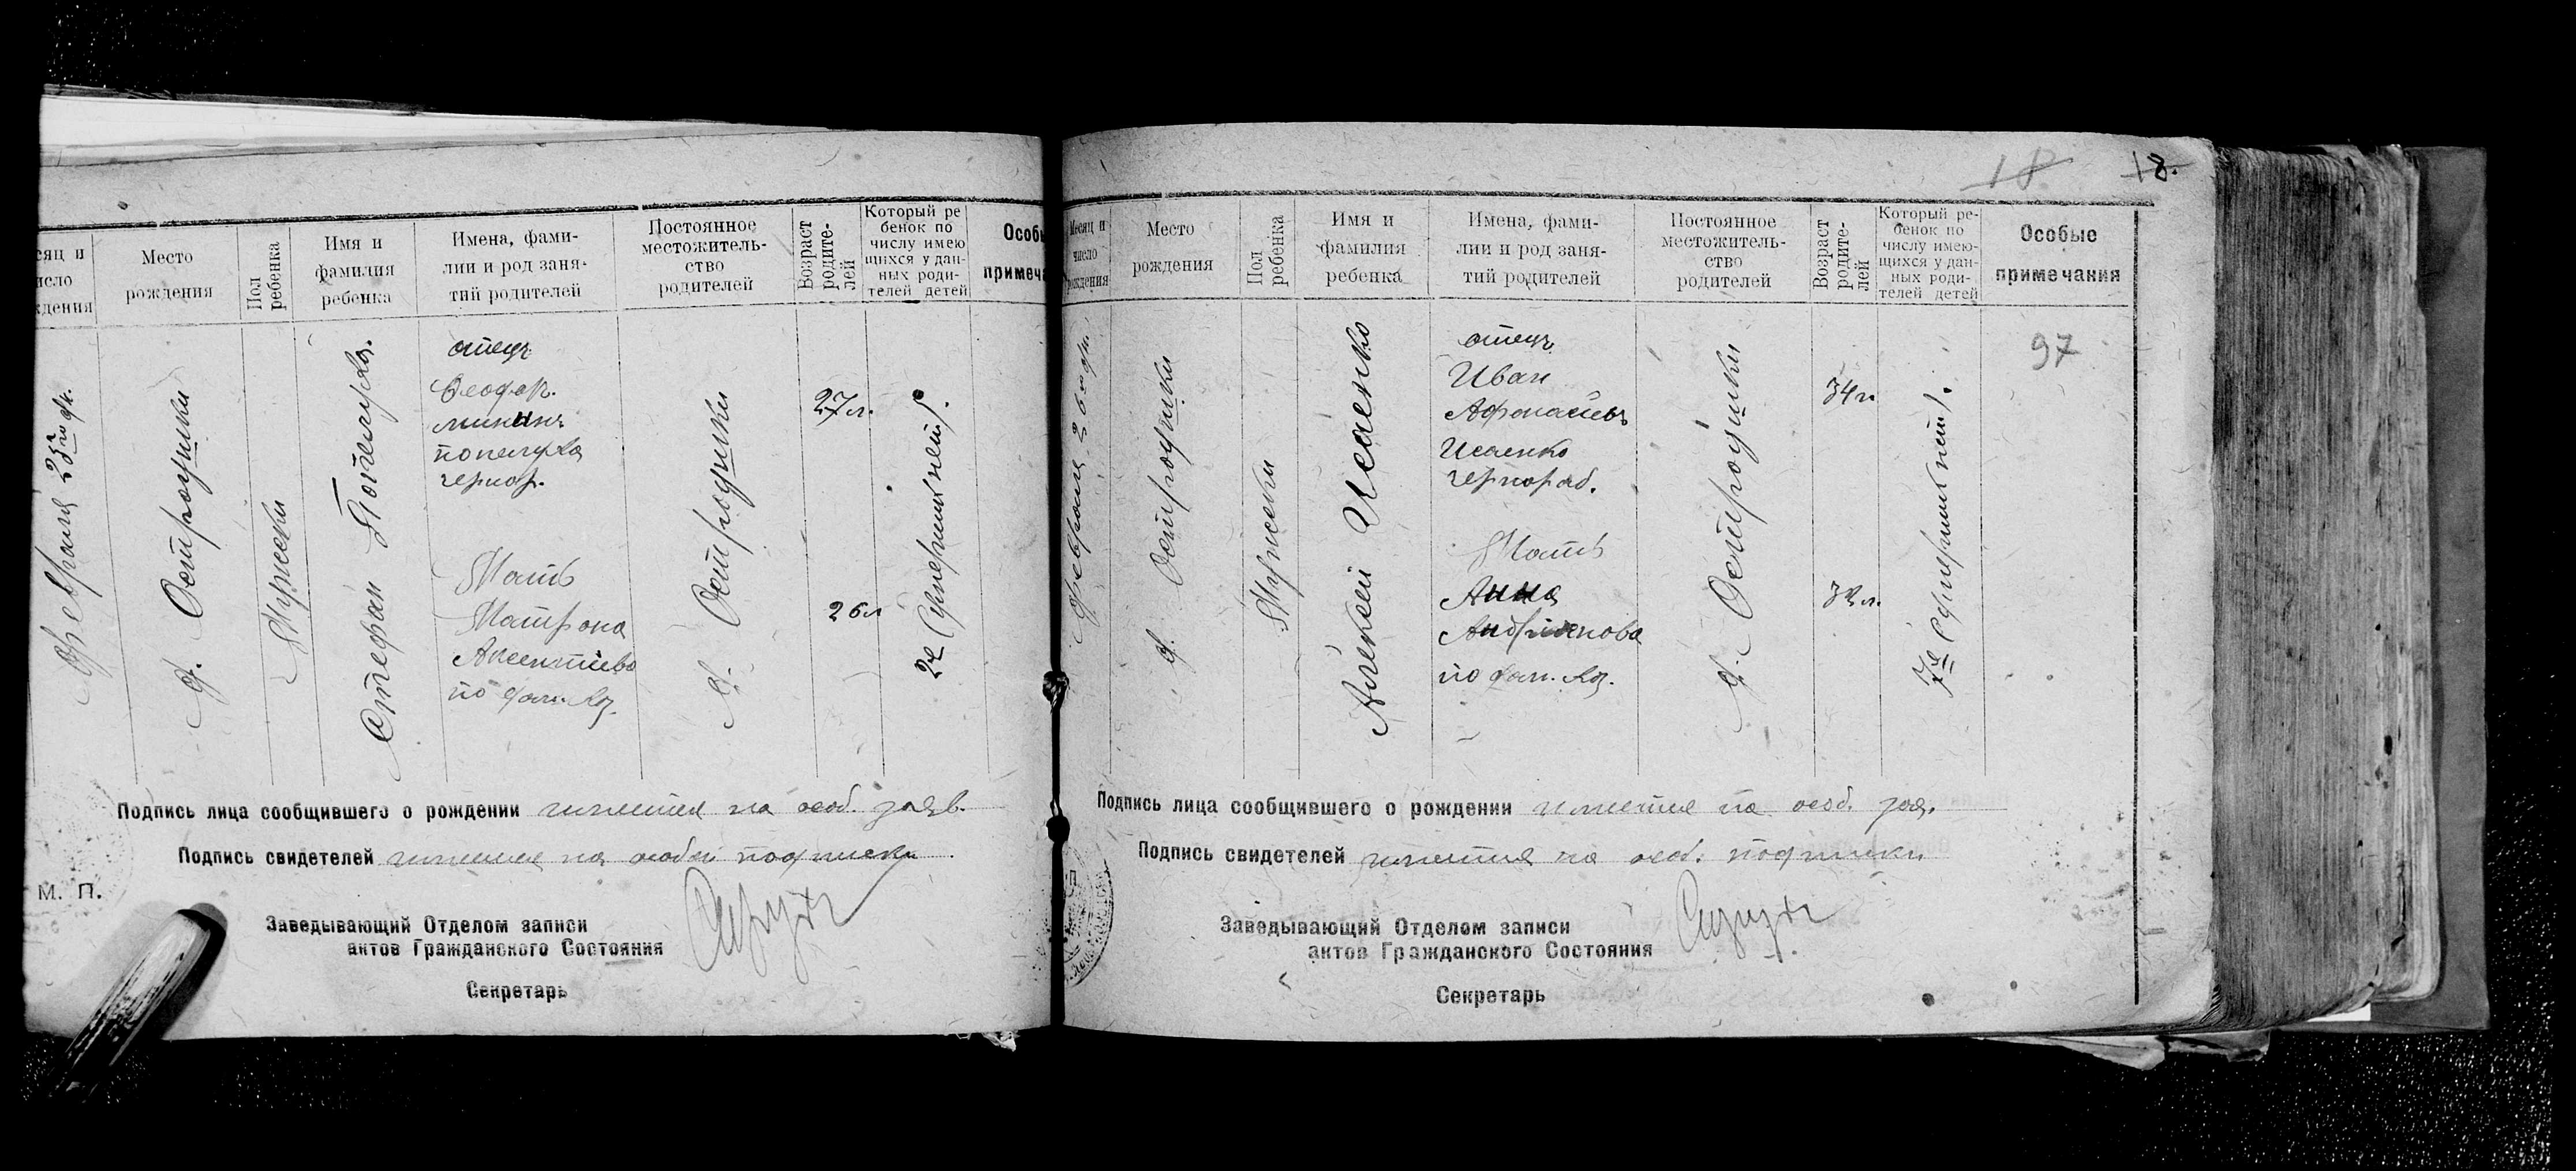 сяц и
исло
ждения
Место
рождения
Пол
ребенка
Имя и
фамилия
ребенка
Имена, фами-
лии и род заня-
тий родителей
Постоянное
местожитель-
ство
родителей
Возраст
родите-
лей
Который ре
бенок по
числу имею
щихся у дан-
ных роди-
телей детей
Особы
примеча
Февраля 25го дн.
д. Остродушки
Мужески
Стефан
отец
Феодор
минин
чернор.
Мать
Матрона
Аксентиева
по фам.
д. Остродушки
27 л.
26 л
2е
Подпись лица сообщившего о рождении имеется на особ. заяв.
Подпись свидетелей имеется на особой подписки
М. П.
Заведывающий Отделом записи
актов Гражданского Состояния
Секретарь
18
18.
Месяц и
число
рождения
Место
рождения
Пол
ребенка
Имя и
фамилия
ребенка
Имена, фами-
лии и род заня-
тий родителей
Постоянное
местожитель-
ство
родителей
Возраст
родите-
лей
Который ре-
бенок по
числу имею-
щихся у дан-
ных роди-
телей детей
Особые
примечания
Февраля 26го дн.
д. Остродушки
Мужески
Алексей Исаенко
отец
Иван
Афонасиев
Исаенко
чернораб.
Мать
Анна
по фам.
д. Остродушки
34 г.
7е
97
Подпись лица сообщившего о рождении имеется на особ. зая.
Подпись свидетелей имеется на особ. подписки
Заведывающий Отделом записи
актов Гражданского Состояния
Секретарь